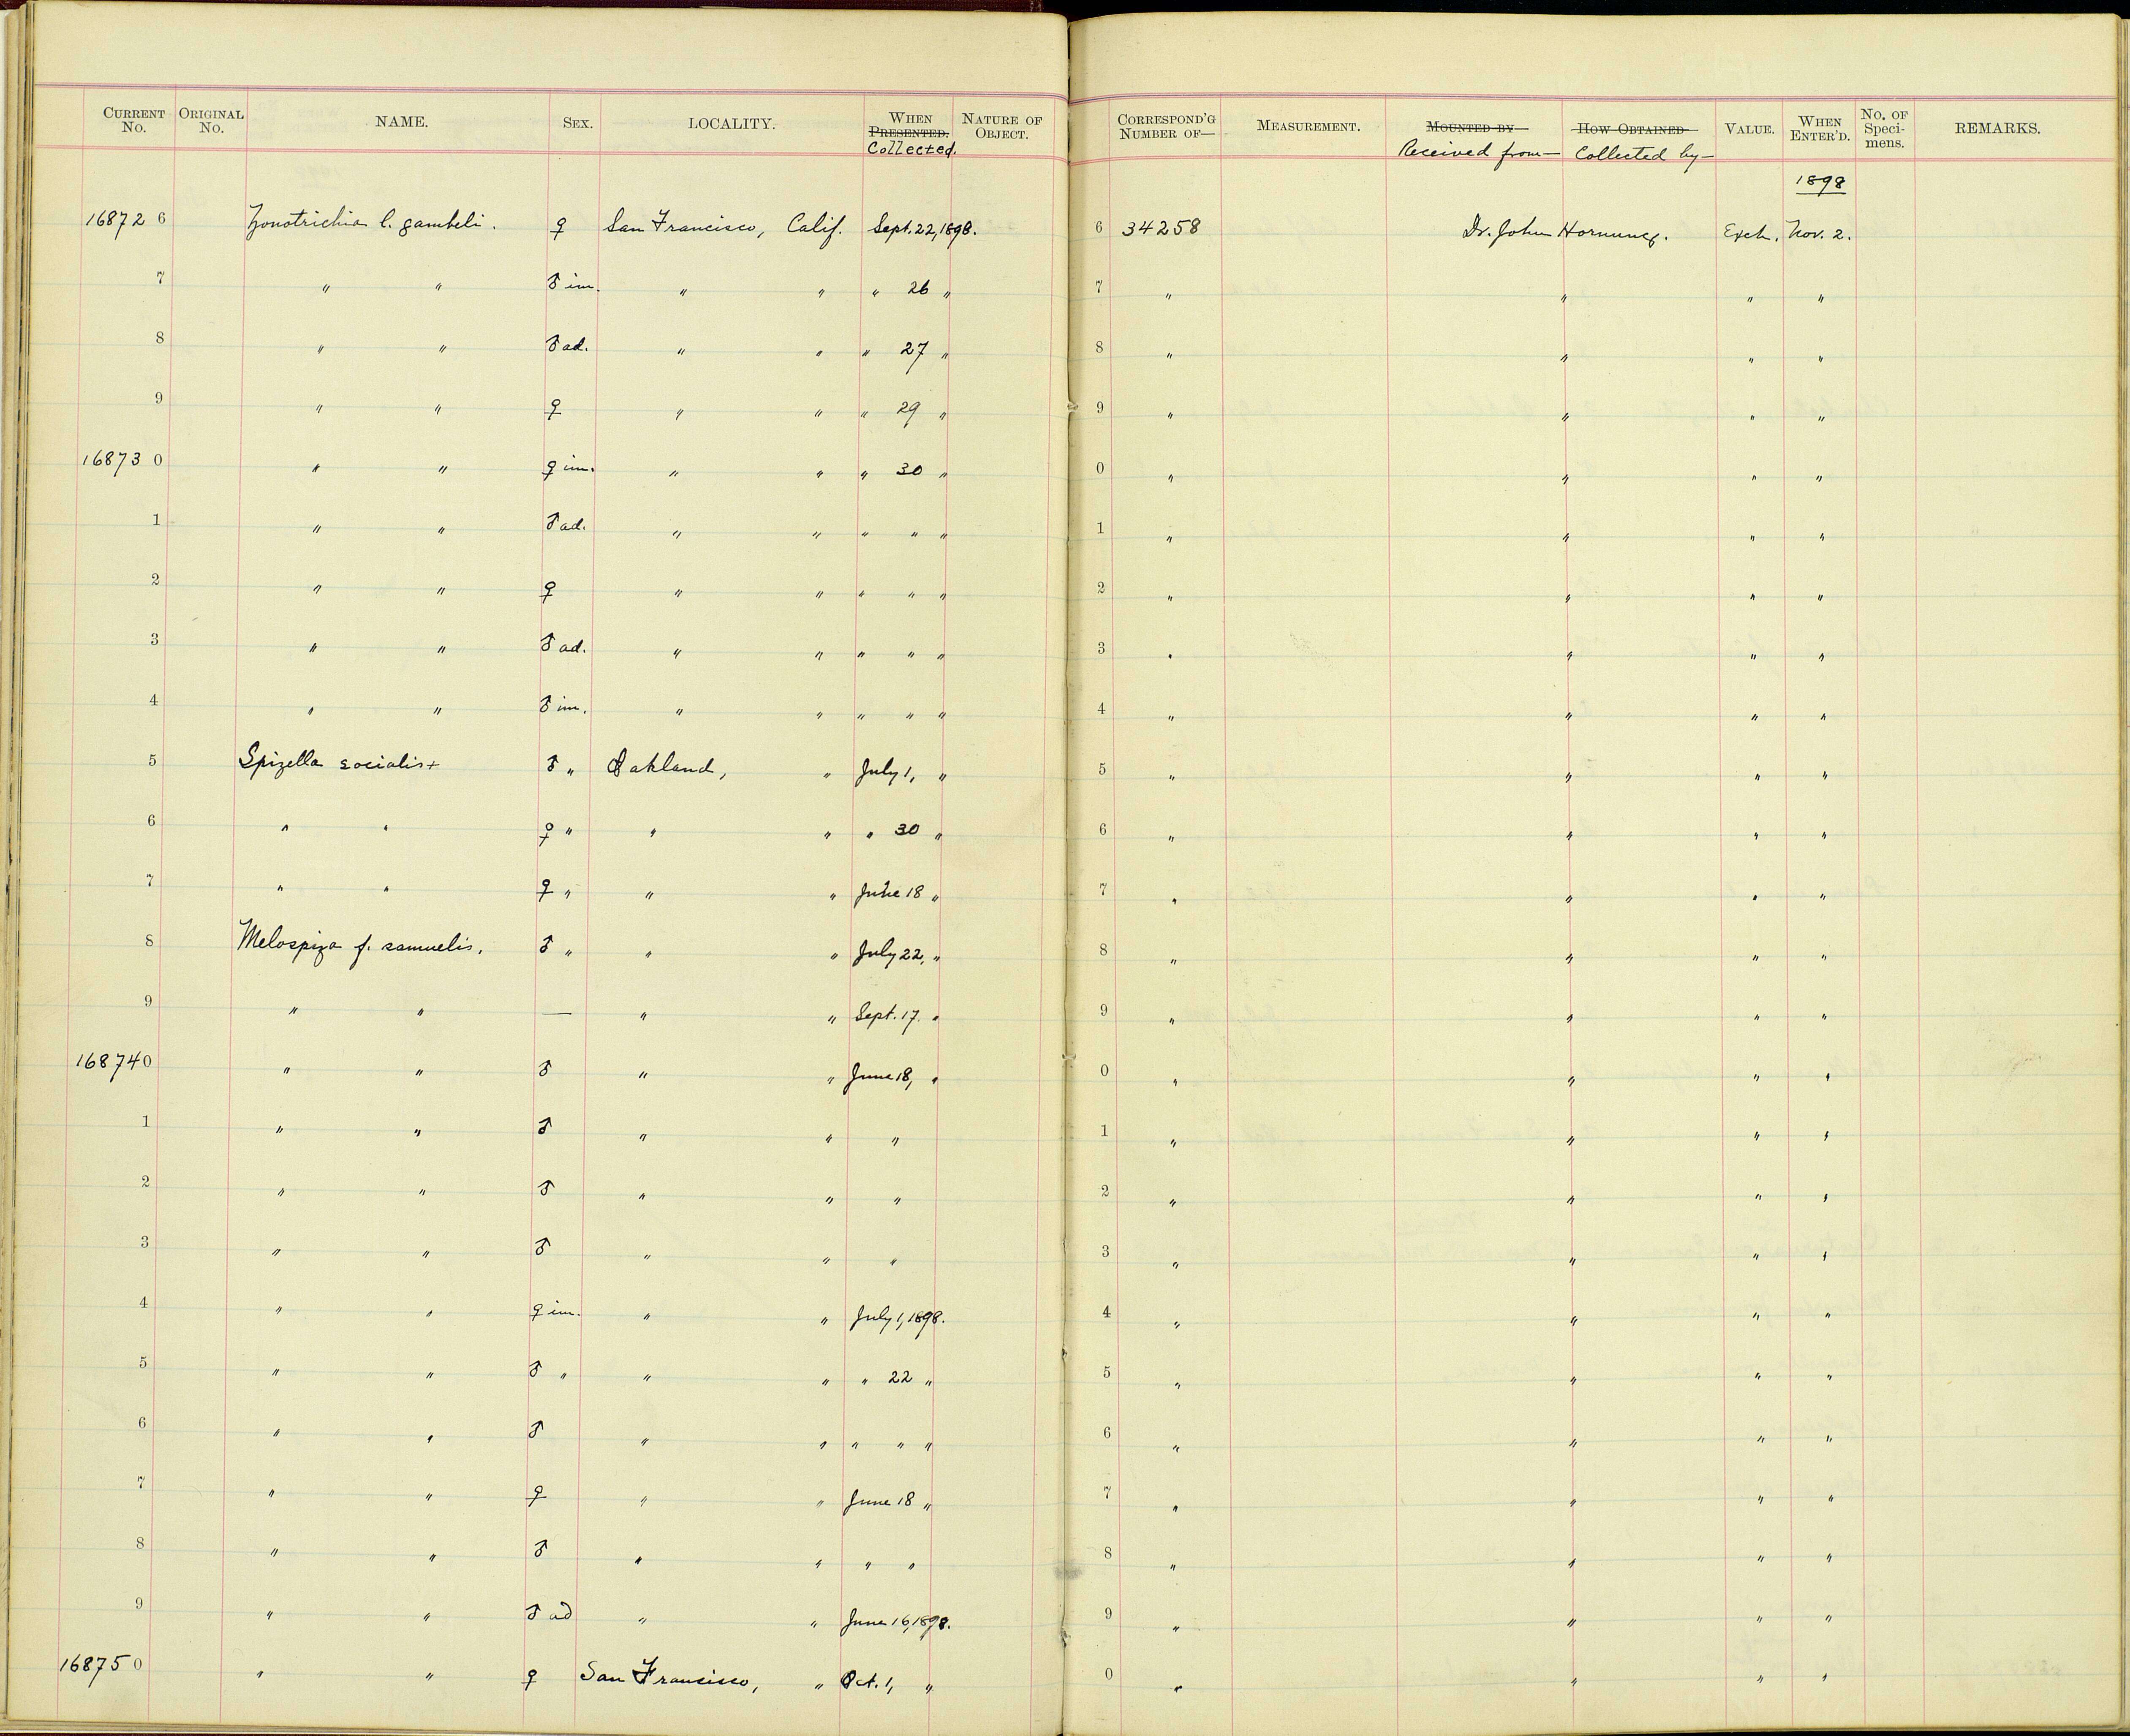 CURRENT No. ORIGINAL No. NAME. SEX. LOCALITY. WHEN PRESENTED. Collected. NATURE OF OBJECT. CORRESPOND'G NUMBER OF— MEASUREMENT. MOUNTED BY— Received from— HOW OBTAINED Collected by— VALUE. WHEN ENTER'D. No. OF Speci- mens. REMARKS.
1898
16872 6 Zonotrichia l. gambeli. ♀ San Francisco, Calif. Sept. 22, 1898. 6 34258 Dr. John Hornung. Exch. Nov. 2.
7 " " ♂ im. " " " 26 " 7 " " " "
8 " " ♂ ad. " " " 27 " 8 " " " "
9 " " ♀ " " " 29 " 9 " " " "
16873 0 " " ♀ im. " " " 30 " 0 " " " "
1 " " ♂ ad. " " " " " 1 " " " "
2 " " ♀ " " " " " 2 " " " "
3 " " ♂ ad. " " " " " 3 " " " "
4 " " ♂ im. " " " " " 4 " " " "
5 Spizella socialis+ ♂ " Oakland, " July 1, " 5 " " " "
6 " " ♀ " " " " 30 " 6 " " " "
7 " " ♀ " " " June 18 " 7 " " " "
8 Melospiza f. samuelis. ♂ " " " July 22, " 8 " " " "
9 " " — " " Sept. 17. " 9 " " " "
16874 0 " " ♂ " " June 18, " 0 " " " "
1 " " ♂ " " " 1 " " " "
2 " " ♂ " " " 2 " " " "
3 " " ♂ " " " 3 " " " "
4 " " ♀ im. " " July 1, 1898. 4 " " " "
5 " " ♂ " " " " 22 " 5 " " " "
6 " " ♂ " " " " " 6 " " " "
7 " " ♀ " " June 18 " 7 " " " "
8 " " ♂ " " " " 8 " " " "
9 " " ♂ ad " " June 16, 1898. 9 " " " "
16875 0 " " ♀ San Francisco, " Oct. 1, " 0 " " " "